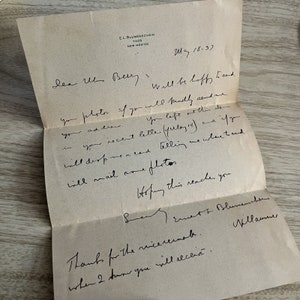 E. L. Blumenschein
Taos
New Mexico
May 18-37
Dear Miss Berry,
Will be happy to send
you photos if you will kindly send me
your address. You left it this
in your recent letter (            ) and if you
will drop me a card telling me where to send
will mail some photos
Hoping this reaches you
Sincerely
Ernest L. Blumenschein
Thanks for the nice remarks
when I know you will